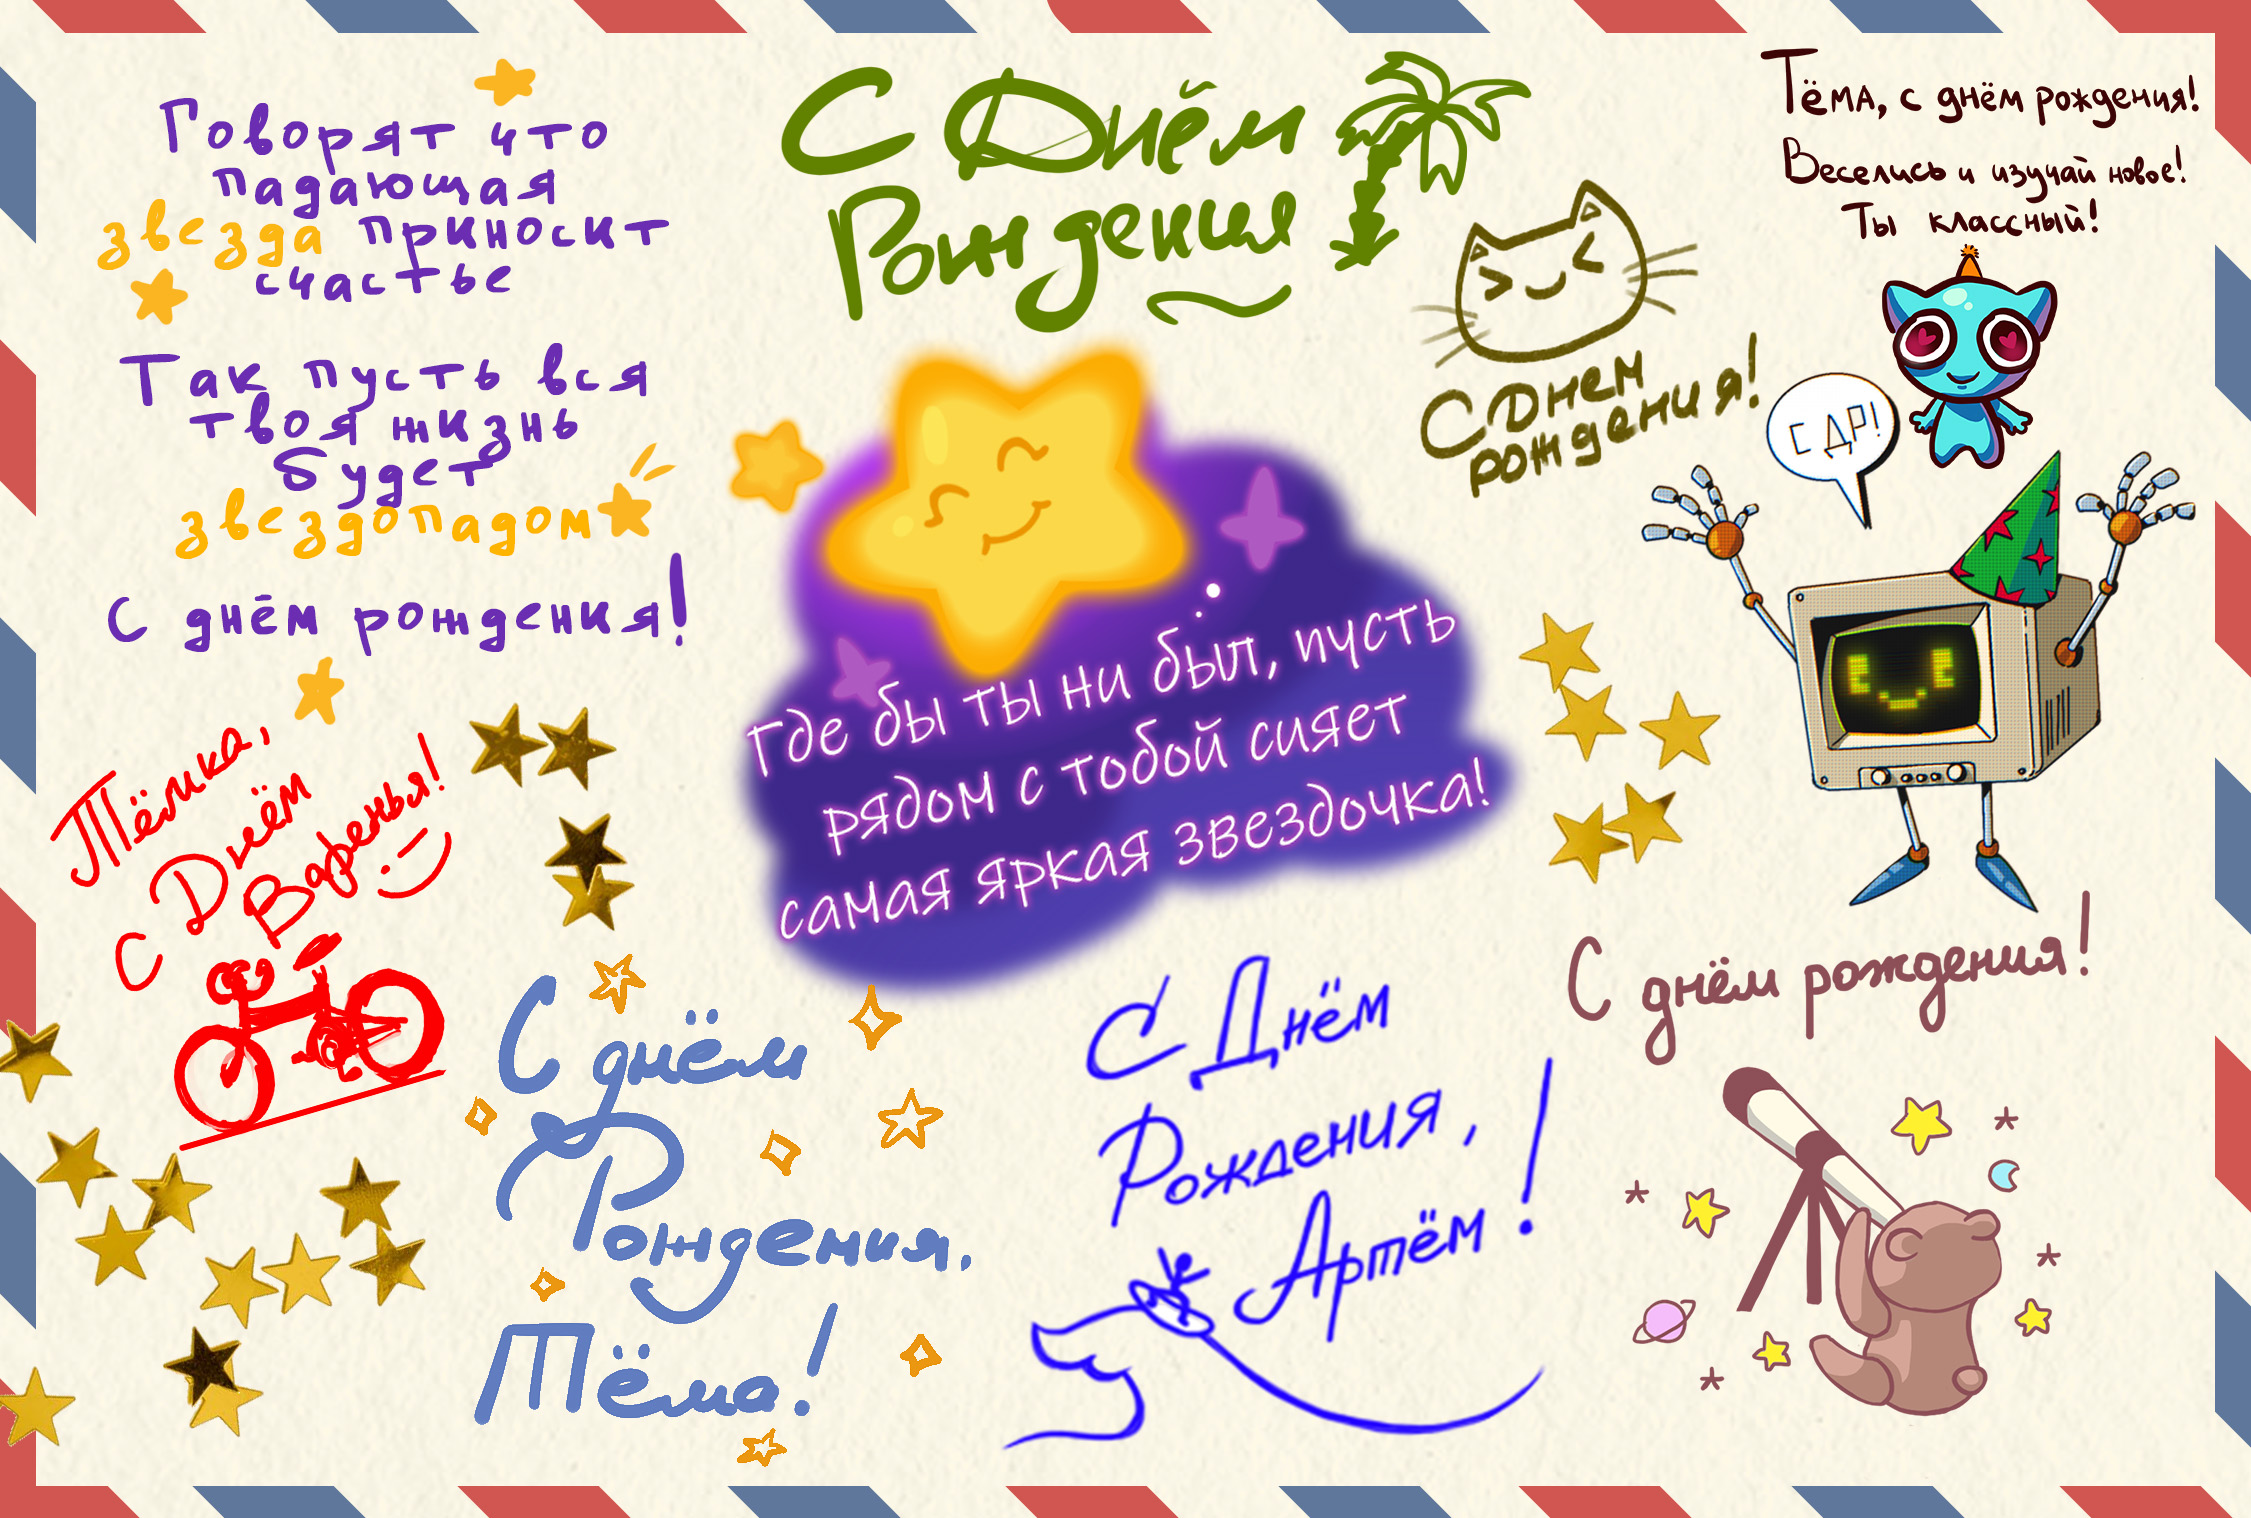 Говорят что
падающая
звезда приносит
счастье
Так пусть вся
твоя жизнь
будет
звездопадом
С днём рождения!
С Днём
Рождения
С Днем
рождения!
Тёма, с днём рождения!
Веселись и изучай новое!
Ты классный!
С ДР!
Где бы ты ни был, пусть
рядом с тобой сияет
самая яркая звездочка!
Тёмка,
С Днём
Варенья!
С днём
Рождения,
Тёма!
С Днём
Рождения,
Артём!
С днём рождения!